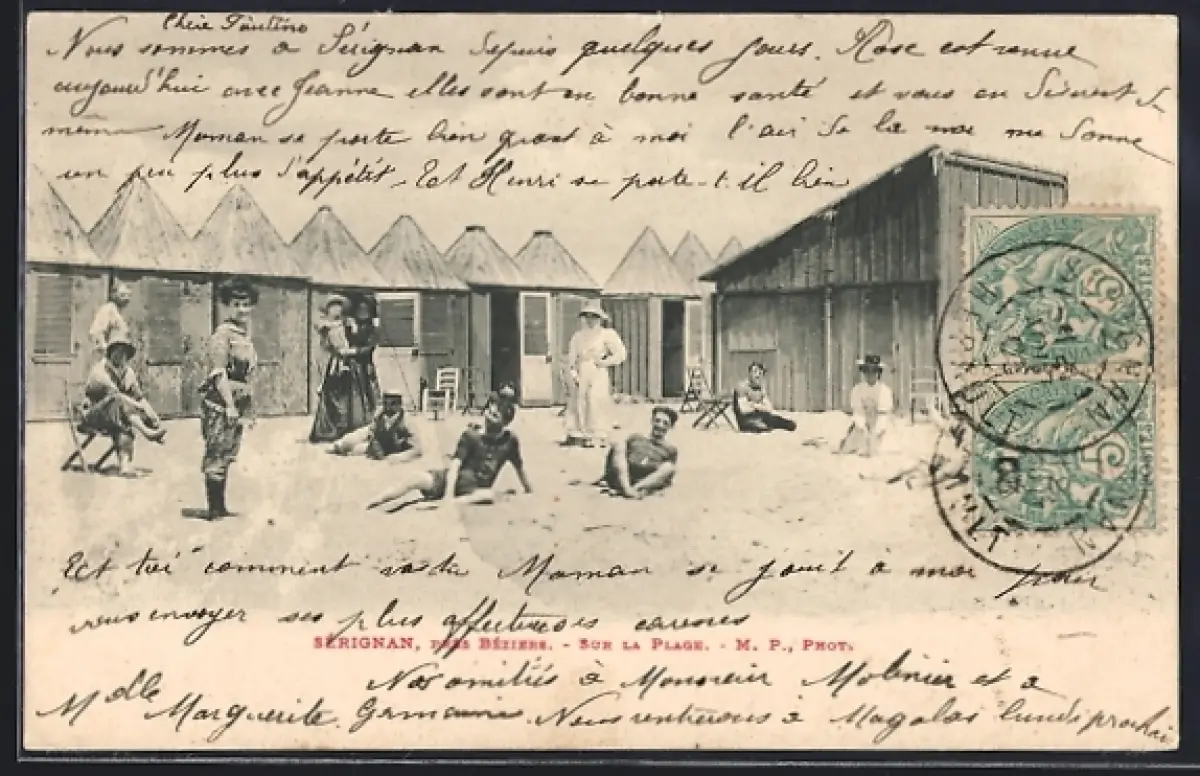 Chère Fantine
Nous sommes à Sérignan depuis quelques jours. Rose est venue
aujourd'hui avec Jeanne elles sont en bonne santé et vous en disent de
même Maman se porte bien quant à moi l'air de la mer me donne
un peu plus d'appétit. Et Henri se porte-t-il bien
Et toi comment vas tu Maman se joint à moi pour
vous envoyer ses plus affectueuses caresses
SÉRIGNAN, PRÈS BÉZIERS. - SUR LA PLAGE. - M. P., PHOT.
Nos amitiés à Monsieur Molinier et à
Mdlle Marguerite Germaine. Nous rentrerons à Magalas lundi prochain